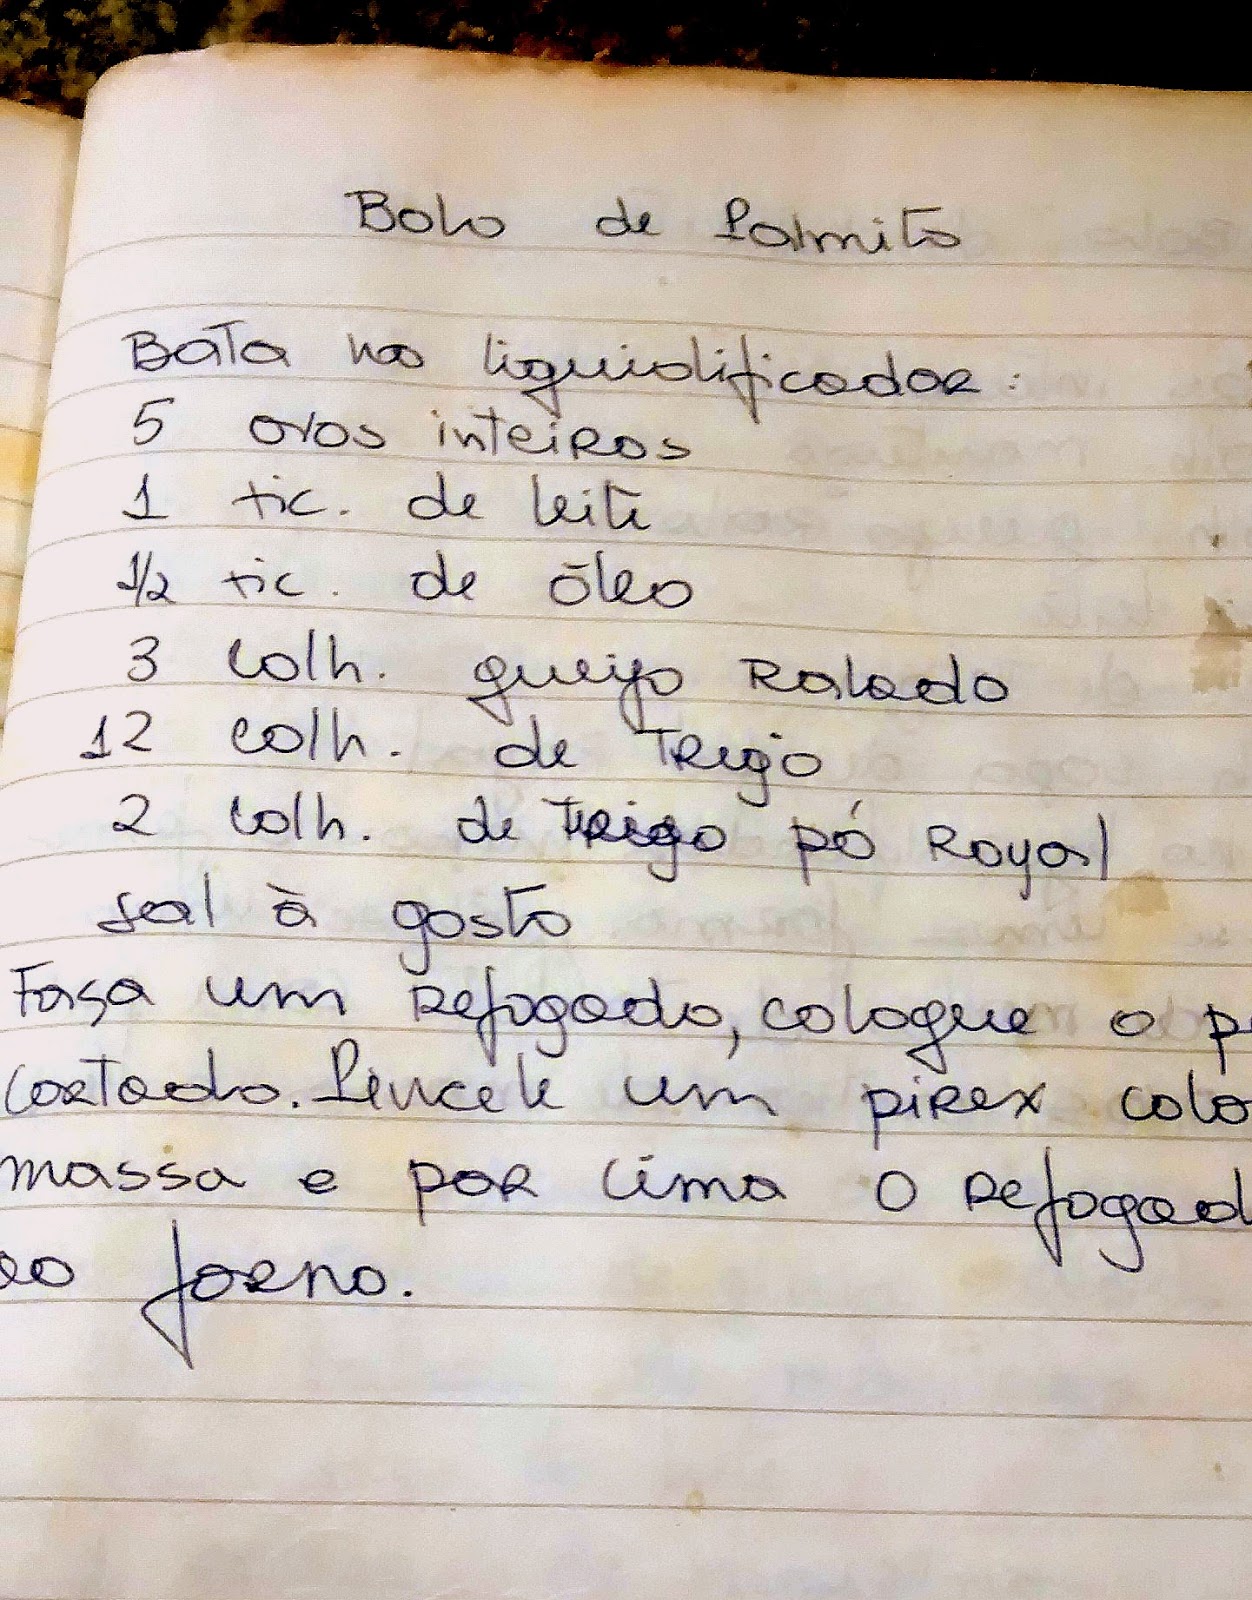 Bolo de Palmito
Bata no liquidificador:
5 ovos inteiros
1 xic. de leite
1/2 xic. de óleo
3 colh. queijo Ralado
12 colh. de Trigo
2 colh. de Trigo pó Royal
sal à gosto
Faça um Refogado, coloque o p
cortado. Pincele um pirex colo
massa e por cima o Refogad
ao forno.